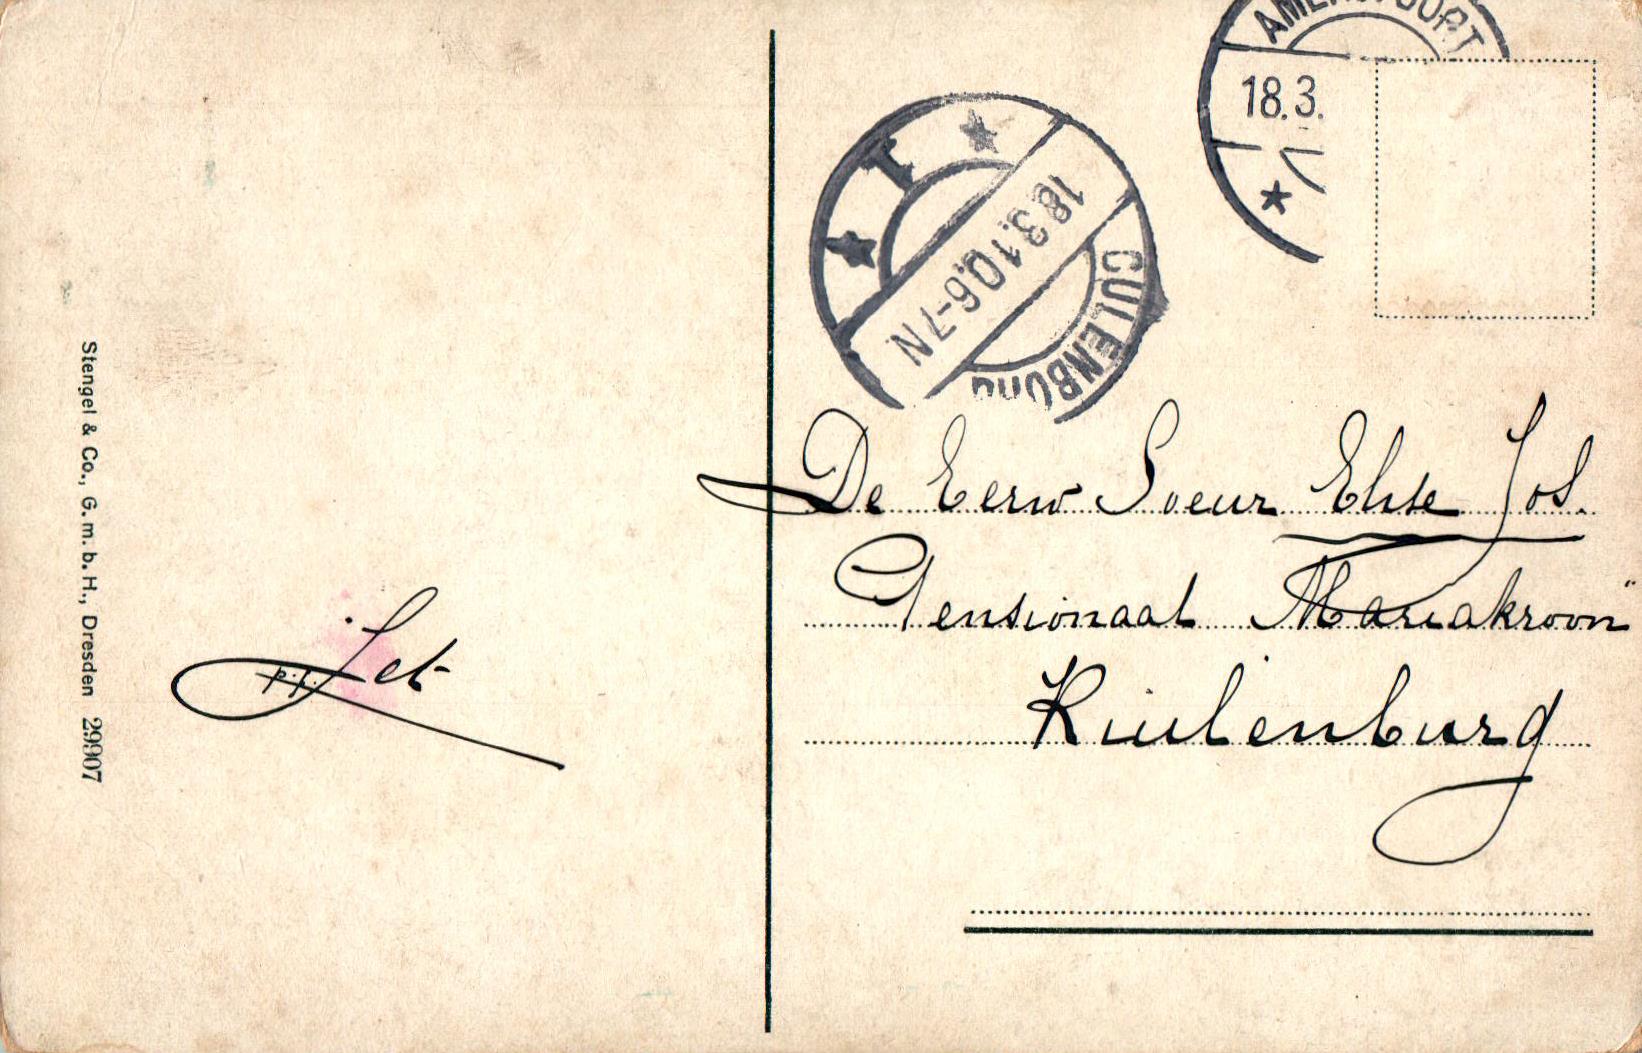 AMERSFOORT
18.3.
CULENBORG
18.3.10.6-7N
1
De Eerw Soeur Elise Jos.
Pensionaat Mariakroon"
Kuilenburg
Jet
p.f.
Stengel & Co., G. m. b. H., Dresden 29907